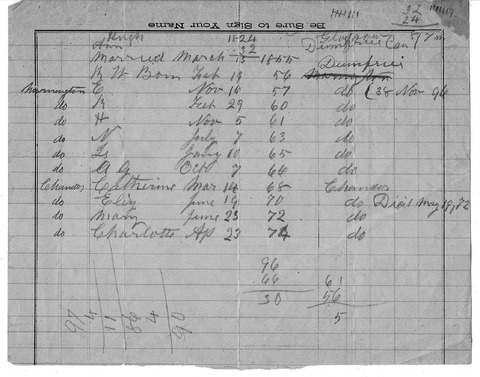 Be Sure to Sign Your Name
Hugh 1824 Glasgow 5/7 m
Ann 32 Dumfries Can
Married March 13 1855 Dumfries
R W Born Feb 19 56 Mornington
Mornington C Nov 16 57 do (38 Nov 96
do R Feb 29 60 do
do H Nov 5 61 do
do N July 7 63 do
do L Jany 10 65 do
do A G Oct 7 66 do
Chandos Catherine Mar 14 68 Chandos
do Eliz June 19 70 do Died May 19, 82
do Mary June 23 72 do
do Charlotte Ap 23 74 do
32
24
96
66
30
61
56
5
97
4
11
86
4
90